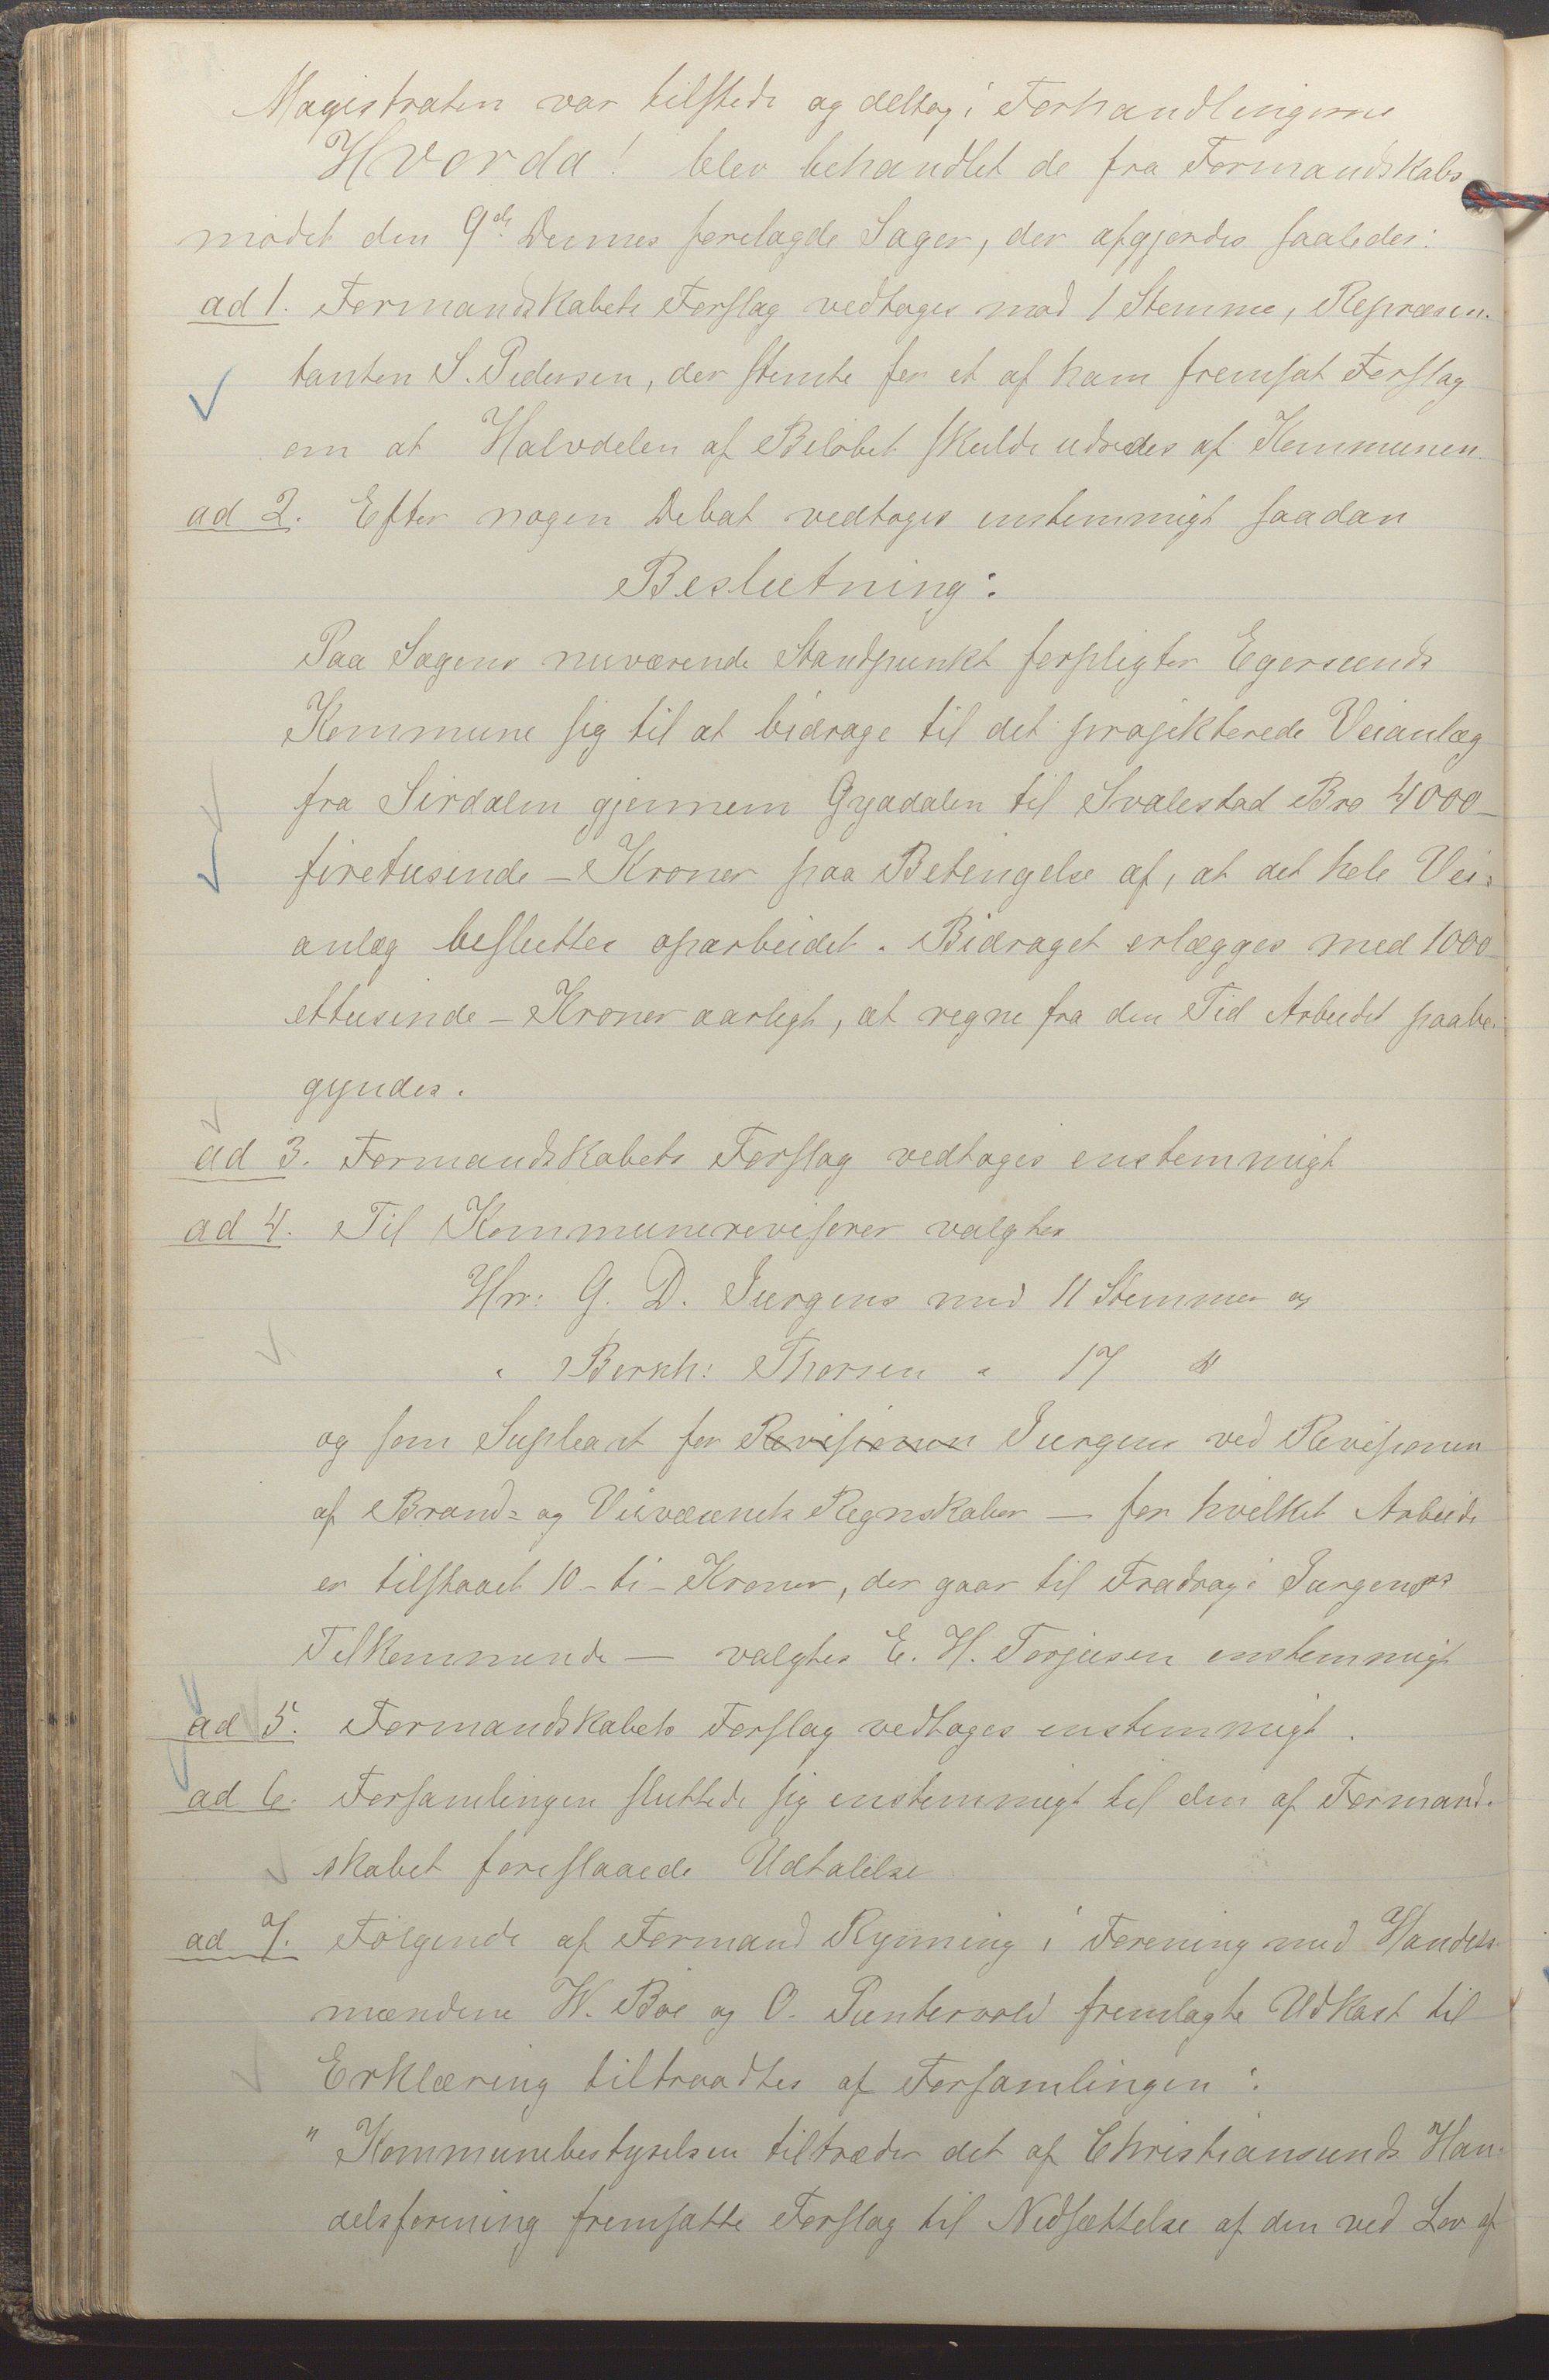 Magistraten var tilstede og deltog i Forhandlingerne
Hvorda! blev behandlet de fra Formandskabs
mødet den 9de Dennes forelagde Sager, der afgjordes saaledes:
ad 1. Formandskabets Forslag vedtoges mod 1 Stemme, Repræsen-
tanten S. Pedersen, der stemte for et af ham fremsat Forslag
om at Halvdelen af Beløbet skulde udredes af Kommunen
ad 2. Efter nogen Debat vedtoges enstemmigt saadan
Beslutning:
Paa Sagens nuværende Standpunkt forpligter Egersunds
Kommune sig til at bidrage til det projekterede Veianlæg
fra Sirdalen gjennem Gyadalen til Svalestad Bro 4000-
firetusinde - Kroner paa Betingelse af, at det hele Vei-
anlæg besluttes oparbeidet. Bidraget erlægges med 1000
ettusinde - Kroner aarligt, at regne fra den Tid Arbeidet paabe-
gyndes.
ad 3. Formandskabets Forslag vedtoges enstemmigt
ad 4. Til Kommunerevisorer valgtes
Hr: G. D. Jurgens med 11 Stemmer og
" Bernh: Thorsen " 17 "
og som Supleant for Revisionen Jurgens ved Revisionen
af Brand- og Veivæsenets Regnskaber — for hvilket Arbeide
er tilstaaet 10 - ti - Kroner, der gaar til Fradrag i Jurgens's
Tilkommende — valgtes E. H. Torjusen enstemmigt
ad 5. Formandskabets Forslag vedtoges enstemmigt.
ad 6. Forsamlingen sluttede sig enstemmigt til den af Formand-
skabet foreslaaede Udtalelse
ad 7. Følgende af Formand Rynning i Forening med Handels-
mændene W. Boe og O. Puntervold fremlagte Udkast til
Erklæring tiltraadtes af Forsamlingen:
" Kommunebestyrelsen tiltræder det af Christiansunds Han-
delsforening fremsatte Forslag til Nedsættelse af den ved Lov af